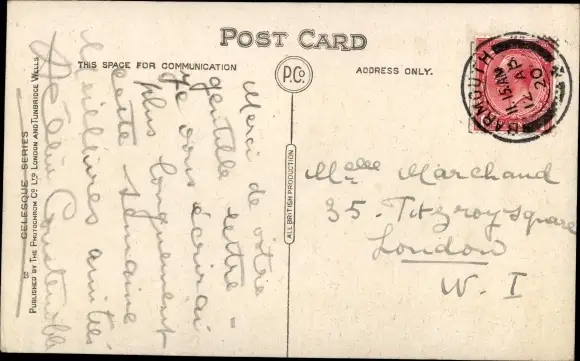 POST CARD
THIS SPACE FOR COMMUNICATION
P.Co
ADDRESS ONLY.
BARMOUTH
11.15AM
12 AP
20
Merci de votre
gentille lettre =
Je vous écrirai
plus longuement
cette semaine
Meilleures amitiés
Constenoble
Mlle Marchand
35. Fitzroy Square
London
W. I
ALL BRITISH PRODUCTION
CELESQUE SERIES
PUBLISHED BY THE PHOTOCHROM CO LTD LONDON AND TUNBRIDGE WELLS